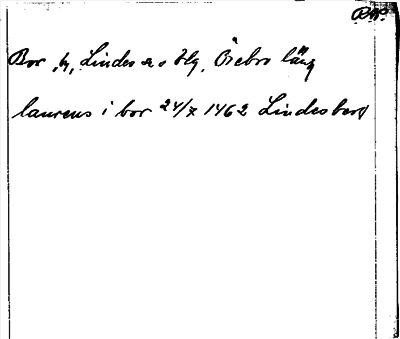 Bor, h, Lindes o Blg. Örebro län
laurens i bor 24/7 1462 Lindesberg